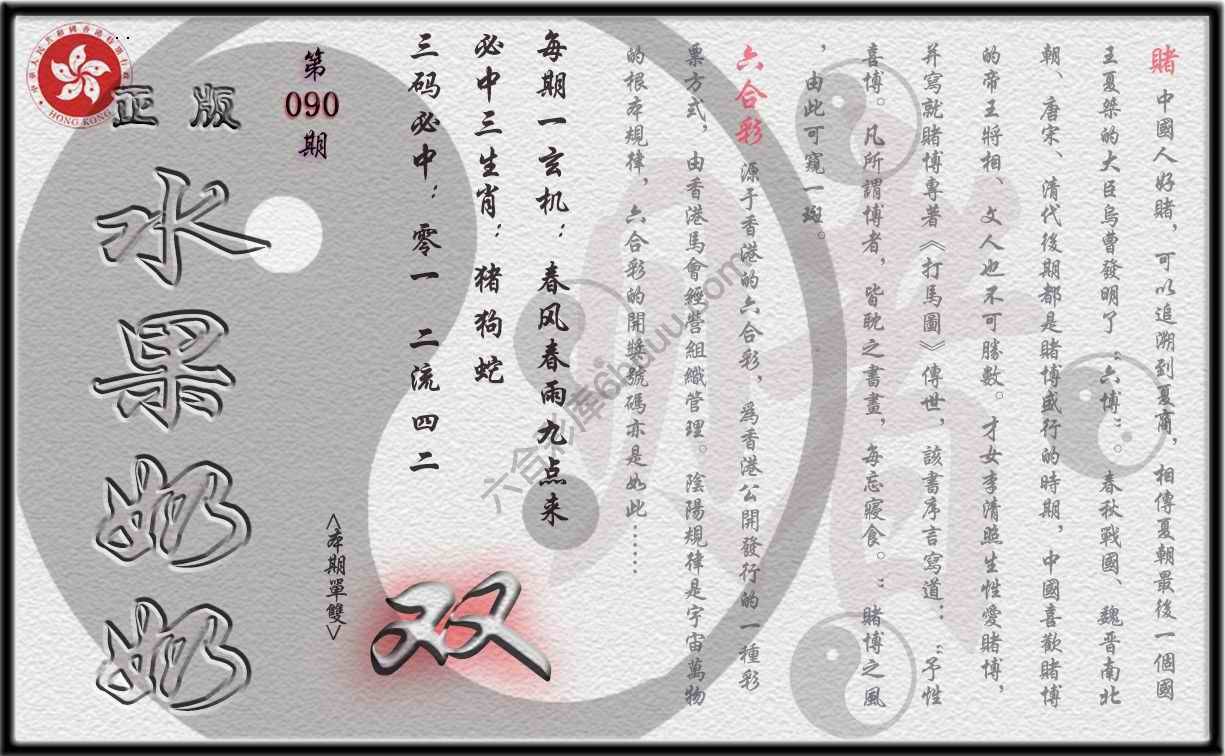 賭 中國人好賭，可以追溯到夏商，相傳夏朝最後一個國
王夏桀的大臣烏曹發明了“六博”。春秋戰國、魏晋南北
朝、唐宋、清代後期都是賭博盛行的時期，中國喜歡賭博
的帝王將相、文人也不可勝數。才女李清照生性愛賭博，
并寫就賭博專著《打馬圖》傳世，該書序言寫道：“予性
喜博。凡所謂博者，皆耽之書畫，每忘寢食。”賭博之風
，由此可窺一斑。
六合彩 源于香港的六合彩，為香港公開發行的一種彩
票方式，由香港馬會經營組織管理。陰陽規律是宇宙萬物
的根本規律，六合彩的開獎號碼亦是如此……
每期一玄机：春风春雨九点来
必中三生肖：猪狗蛇
三码必中：零一 二流 四二
第
090
期
<本期單雙>
双
正版
水果奶奶
HONG KONG
六合彩库6hduu.com